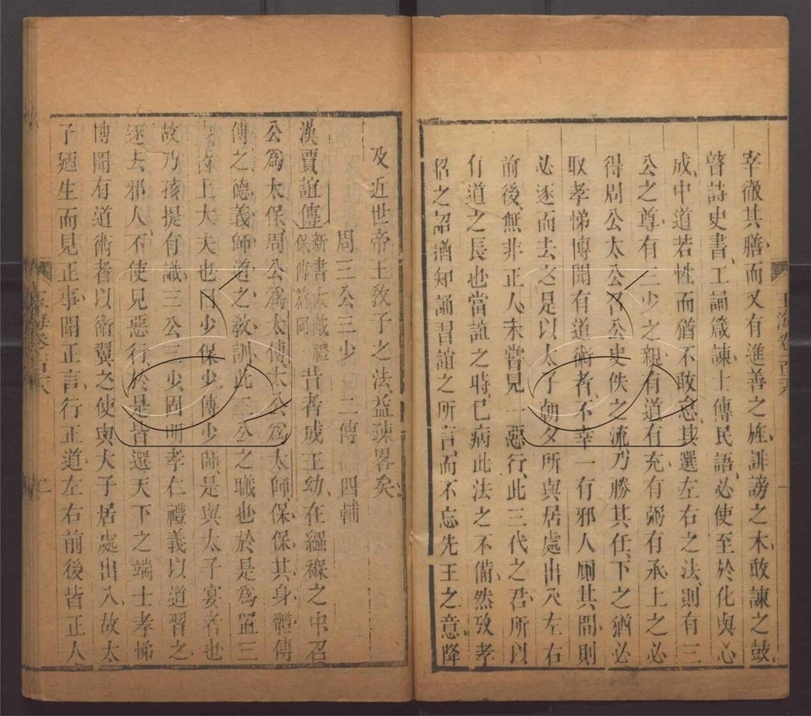 宰徹其膳而又有進善之旌誹謗之木敢諫之鼓
瞽詩史書工誦箴諫士傳民語必使至於化與心
成中道若性而猶不敢怠其選左右之法則有三
公之尊有三少之親有道有充有弼有承上之必
得周公太公召公史佚之流乃勝其任下之猶必
取孝悌博聞有道術者不幸一有邪人厠其間則
必逐而去之是以太子朝夕所與居處出入左右
前後無非正人未嘗見一惡行此三代之君所以
有道之長也當誼之時已病此法之不備然攷孝
昭之詔猶知誦習誼之所言而不忘先王之意降
玉海卷一百二十八
及近世帝王教子之法益疎畧矣
周三公三少 二傅 四輔
漢賈誼傳新書大戴禮保傅篇同昔者成王幼在繈褓之中召
公爲太保周公爲太傅太公爲太師保保其身體傅
傅之德義師道之教訓此三公之職也於是爲置三
少皆上大夫也曰少保少傅少師是與太子宴者也
故乃孩提有識三公三少固明孝仁禮義以道習之
逐去邪人不使見惡行於是皆選天下之端士孝悌
博聞有道術者以衛翼之使與太子居處出入故太
子廼生而見正事聞正言行正道左右前後皆正人